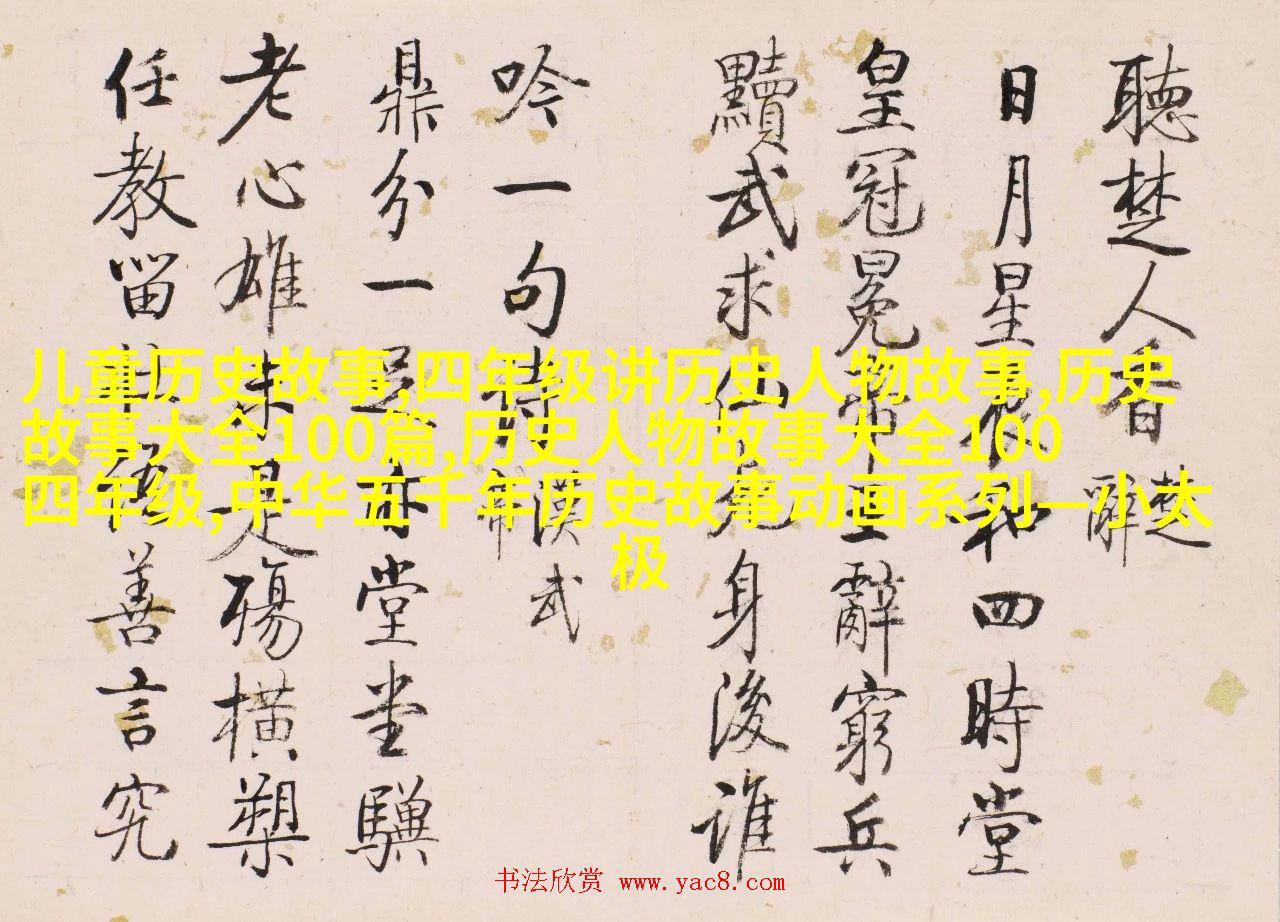 聽楚人香
楚
辭
日月星辰和四時堂
皇冠冕帝王辭窮兵
黷武求仙久身後誰
吟一句詩
漢武
帝
鼎分一足亦堂堂驥
老心雄未足殤橫槊
任教留善言究
儿童历史故事,四年级讲历史人物故事,历史
故事大全100篇,历史人物故事大全100
四年级,中华五千年历史故事动画系列—小太
极
书法欣赏 www.yac8.com